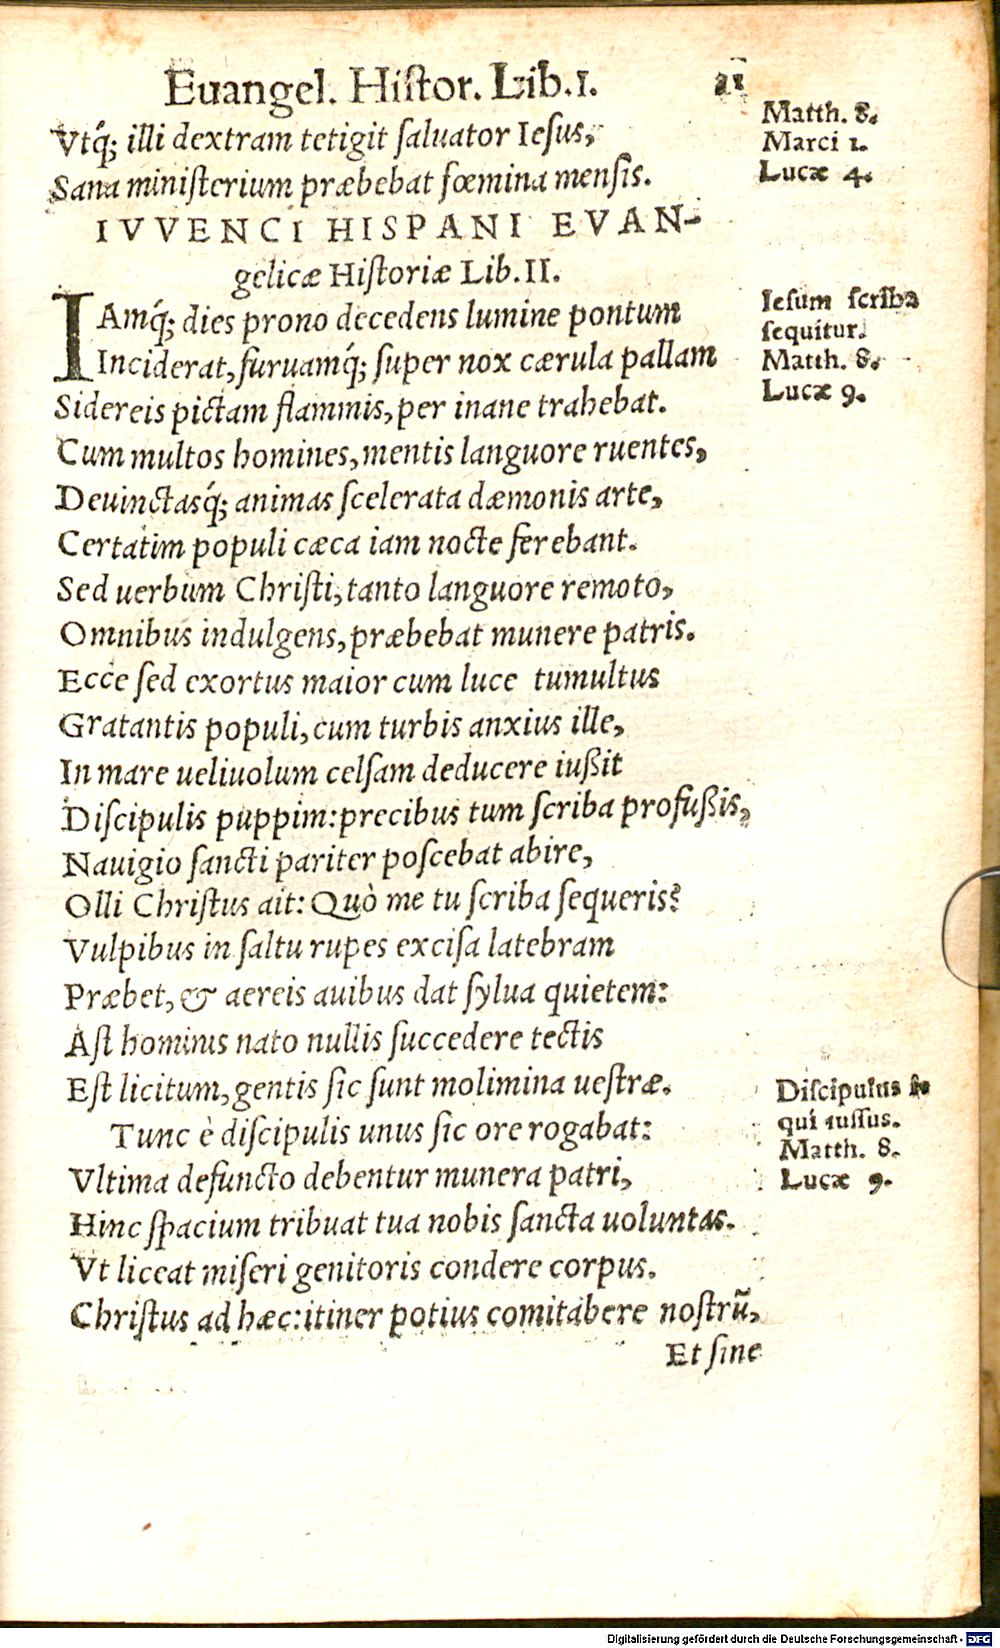 Euangel. Histor. Lib. I. 21
Vtq́; illi dextram tetigit saluator Iesus,
Sana ministerium præbebat fœmina mensis.
Matth. 8.
Marci 1.
Lucæ 4.
IVVENCI HISPANI EVAN-
gelicæ Historiæ Lib. II.
IAmq́; dies prono decedens lumine pontum
Inciderat, furuamq́; super nox cærula pallam
Sidereis pictam flammis, per inane trahebat.
Iesum scriba
sequitur.
Matth. 8.
Lucæ 9.
Cum multos homines, mentis languore ruentes,
Deuinctasq́; animas scelerata dæmonis arte,
Certatim populi cæca iam nocte ferebant.
Sed uerbum Christi, tanto languore remoto,
Omnibus indulgens, præbebat munere patris.
Ecce sed exortus maior cum luce tumultus
Gratantis populi, cum turbis anxius ille,
In mare ueliuolum celsam deducere iußit
Discipulis puppim: precibus tum scriba profußis,
Nauigio sancti pariter poscebat abire,
Olli Christus ait: Quò me tu scriba sequeris?
Vulpibus in saltu rupes excisa latebram
Præbet, & aereis auibus dat sylua quietem:
Ast hominis nato nullis succedere tectis
Est licitum, gentis sic sunt molimina uestræ.
Tunc è discipulis unus sic ore rogabat:
Vltima defuncto debentur munera patri,
Discipulus se
qui iussus.
Matth. 8.
Lucæ 9.
Hinc spacium tribuat tua nobis sancta uoluntas.
Vt liceat miseri genitoris condere corpus.
Christus ad hæc: itiner potius comitabere nostrũ,
Et sine
Digitalisierung gefördert durch die Deutsche Forschungsgemeinschaft - DFG